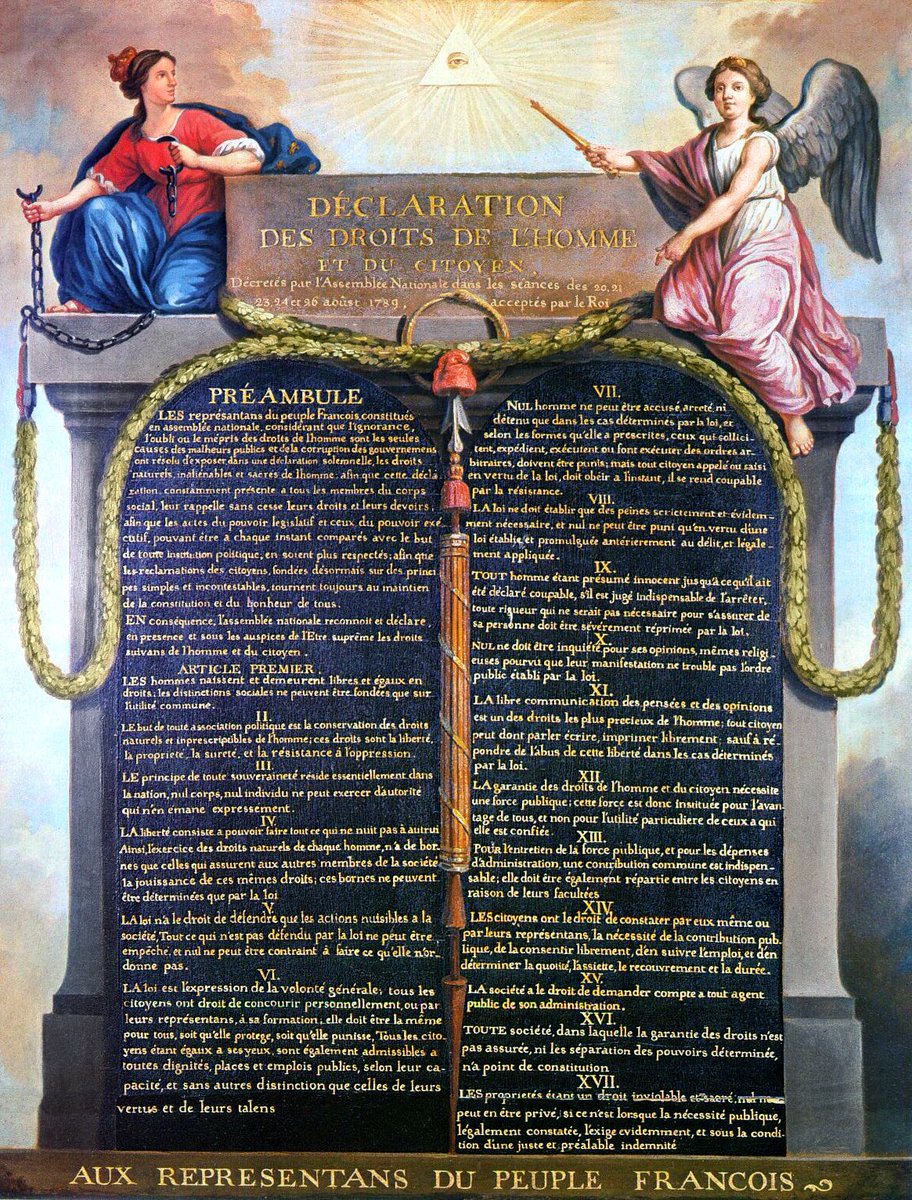 DÉCLARATION
DES DROITS DE L'HOMME
ET DU CITOYEN,
Décretés par l'Assemblée Nationale dans les séances des 20, 21
23, 24 et 26 août 1789, acceptés par le Roi
PRÉAMBULE
LES représantans du peuple François, constitués
en assemblée nationale, considérant que l'ignorance,
l'oubli ou le mépris des droits de l'homme sont les seules
causes des malheurs publics et de la corruption des gouvernemens
ont résolu d'exposer dans une déclaration solemnelle, les droits
naturels, inaliénables et sacrés de l'homme; afin que cette décla
ration, constamment présente a tous les membres du corps
social, leur rappelle sans cesse leurs droits et leurs devoirs,
afin que les actes du pouvoir législatif et ceux du pouvoir exé
cutif, pouvant être a chaque instant comparés avec le but
de toute institution politique, en soient plus respectés; afin que
les reclamations des citoyens, fondées désormais sur des princi
pes simples et incontestables, tournent toujours au maintien
de la constitution et du bonheur de tous.
EN conséquence, l'assemblée nationale reconnoit et déclare,
en presence et sous les auspices de l'Etre suprême les droits
suivans de l'homme et du citoyen.
ARTICLE PREMIER.
LES hommes naissent et demeurent libres et égaux en
droits; les distinctions sociales ne peuvent être fondées que sur
l'utilité commune.
II.
LE but de toute association politique est la conservation des droits
naturels et inprescriptibles de l'homme; ces droits sont la liberté,
la propriété, la sureté, et la résistance à l'oppression.
III.
LE principe de toute souveraineté réside essentiellement dans
la nation, nul corps, nul individu ne peut exercer d'autorité
qui n'en émane expressement.
IV.
LA liberté consiste a pouvoir faire tout ce qui ne nuit pas à autrui
Ainsi, l'exercice des droits naturels de chaque homme, n'a de bor-
nes que celles qui assurent aux autres membres de la société
la jouissance de ces mêmes droits; ces bornes ne peuvent
être déterminées que par la loi
V.
LA loi n'a le droit de défendre que les actions nuisibles a la
société, Tout ce qui n'est pas défendu par la loi ne peut être
empêché, et nul ne peut être contraint à faire ce qu'elle n'or-
donne pas.
VI.
LA loi est l'expression de la volonté générale; tous les
citoyens ont droit de concourir personnellement, ou par
leurs représentans, à sa formation; elle doit être la même
pour tous, soit qu'elle protege, soit qu'elle punisse, Tous les cito
yens étant égaux a ses yeux, sont également admissibles à
toutes dignités, places et emplois publics, selon leur ca
pacité, et sans autres distinction que celles de leurs
vertus et de leurs talens
VII.
NUL homme ne peut être accusé, arreté, ni
détenu que dans les cas déterminés par la loi, et
selon les formes qu'elle a prescrites, ceux qui sollici-
tent, expédient, exécutent ou font exécuter des ordres ar-
bitraires, doivent être punis; mais tout citoyen appelé ou saisi
en vertu de la loi, doit obéir a l'instant, il se rend coupable
par la résistance.
VIII.
LA loi ne doit établir que des peines strictement et évidem-
ment nécessaire, et nul ne peut être puni qu'en vertu d'une
loi établie et promulguée antérierement au délit, et légale-
ment appliquée.
IX.
TOUT homme étant présumé innocent jusqu'a ce qu'il ait
été déclaré coupable, s'il est jugé indispensable de l'arrêter,
toute rigueur qui ne serait pas nécessaire pour s'assurer de
sa personne doit être sévérement réprimée par la loi.
X.
NUL ne doit être inquiété pour ses opinions, mêmes religi-
euses pourvu que leur manifestation ne trouble pas l'ordre
public établi par la loi.
XI.
LA libre communication des pensées et des opinions
est un des droits les plus precieux de l'homme; tout citoyen
peut dont parler écrire, imprimer librement; sauf à ré-
pondre de l'abus de cette liberté dans les cas déterminés
par la loi.
XII.
LA garantie des droits de l'homme et du citoyen nécessite
une force publique; cette force est donc instituée pour l'avan-
tage de tous, et non pour l'utilité particuliere de ceux a qui
elle est confiée.
XIII.
Pour l'entretien de la force publique, et pour les dépenses
d'administration, une contribution commune est indispen-
sable; elle doit être également répartie entre les citoyens en
raison de leurs facultées
XIV.
LES citoyens ont le droit de constater par eux même ou
par leurs représentans, la nécessité de la contribution pub-
lique, de la consentir librement, d'en suivre l'emploi, et d'en
déterminer la quotité, l'assiette, le recouvrement et la durée.
XV.
LA société a le droit de demander compte a tout agent
public de son administration.
XVI.
TOUTE société, dans laquelle la garantie des droits n'est
pas assurée, ni les séparation des pouvoirs déterminée,
n'a point de constitution
XVII.
LES proprietés étant un droit inviolable et sacré, nul ne
peut en être privé, si ce n'est lorsque la nécessité publique,
légalement constatée, l'exige evidemment, et sous la condi
tion d'une juste et préalable indemnité
AUX REPRESENTANS DU PEUPLE FRANCOIS